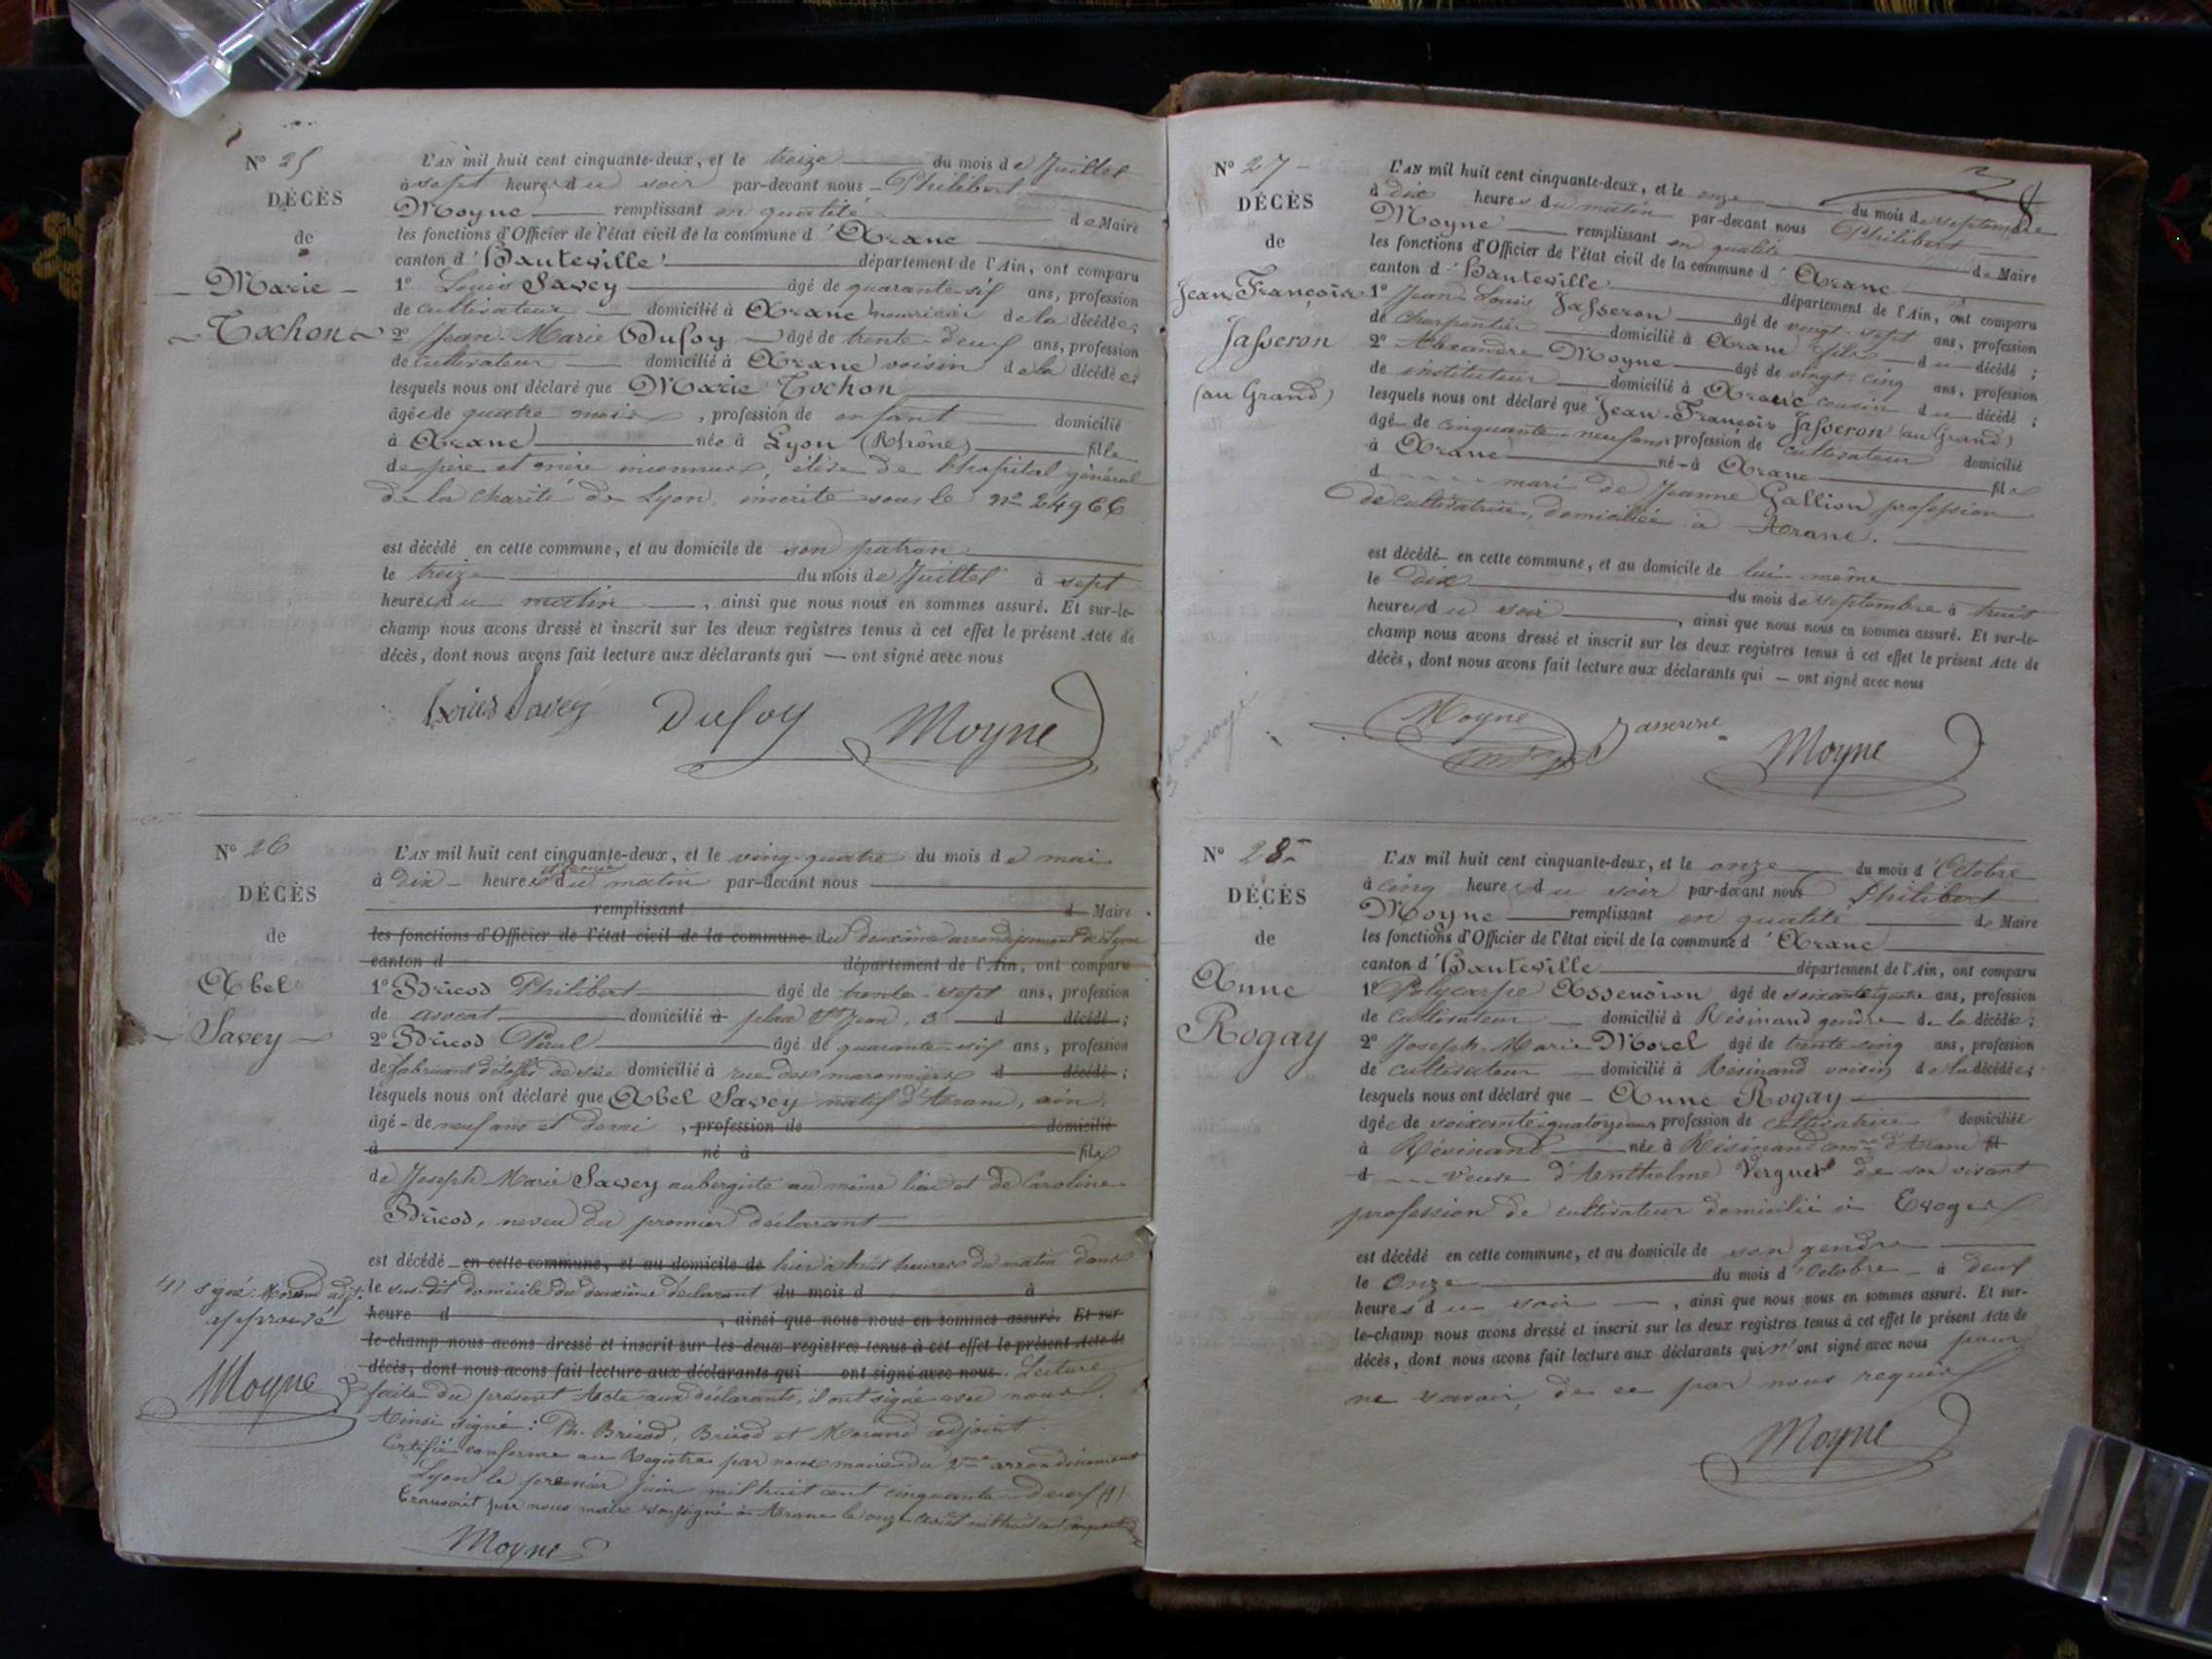 N° 25
DÉCÈS
de
Marie
Tochon
L'AN mil huit cent cinquante-deux, et le treize du mois de Juillet
à sept heures du soir par-devant nous Philibert
Moyne remplissant en qualité de Maire
les fonctions d'Officier de l'état civil de la commune d'Aranc
canton d'Hauteville département de l'Ain, ont comparu
1° Louis Savey âgé de quarante-six ans, profession
de cultivateur domicilié à Aranc nourricier de la décédée;
2° Jean-Marie Dufoy âgé de trente-deux ans, profession
de cultivateur domicilié à Aranc voisin de la décédée;
lesquels nous ont déclaré que Marie Tochon
âgée de quatre mois, profession de enfant domicilié
à Aranc née à Lyon (Rhône) fille
de père et mère inconnus, élève de l'hopital général
de la charité de Lyon, inscrite sous le n° 24966
est décédé en cette commune, et au domicile de son patron
le treize du mois de Juillet à sept
heures du matin, ainsi que nous nous en sommes assuré. Et sur-le-
champ nous avons dressé et inscrit sur les deux registres tenus à cet effet le présent Acte de
décès, dont nous avons fait lecture aux déclarants qui — ont signé avec nous
Louis Savey Dufoy Moyne
N° 26
DÉCÈS
de
Abel
Savey
L'AN mil huit cent cinquante-deux, et le ving-quatre du mois de mai
à dix heures du matin par-devant nous
remplissant d Maire
les fonctions d'Officier de l'état civil de la commune du deuxième arrondissement de Lyon
canton d département de l'Ain, ont comparu
1° Bricod Philibert âgé de trente-sept ans, profession
de avocat domicilié à place St Jean, 3 d décédé;
2° Bricod Paul âgé de quarante-six ans, profession
de fabricant d'étoffes de soie domicilié à rue des maronniers d décédé;
lesquels nous ont déclaré que Abel Savey natif d'Aranc, ain,
âgé de neuf ans et demi, profession de domicilié
à né à fils
de Joseph-Marie Savey aubergiste au même lieu et de Caroline
Bricod, neveu du premier déclarant
est décédé en cette commune, et au domicile de hier à huit heures du matin dans
le sus-dit domicile du deuxième déclarant du mois d à
heure d, ainsi que nous nous en sommes assuré. Et sur
le-champ nous avons dressé et inscrit sur les deux registres tenus à cet effet le présent Acte de
décès, dont nous avons fait lecture aux déclarants qui ont signé avec nous. Lecture
faite du présent Acte aux déclarants, il ont signé avec nous.
Ainsi signé: Ph. Bricod, Bricod et Morand adjoint.
Certifié conforme au Registre par nous maire du 2me arrondissement
Lyon le premier juin mil huit cent cinquante-deux (1)
Transcrit par nous maire soussigné à Aranc le onze Août mil huit cent cinquante deux
Moyne
(1) signé: Morand adj.
approuvé
Moyne
N° 27
DÉCÈS
de
Jean-François
Jasseron
(au Grand)
L'AN mil huit cent cinquante-deux, et le onze du mois de septembre
à dix heures du matin par-devant nous Philibert
Moyne remplissant en qualité de Maire
les fonctions d'Officier de l'état civil de la commune d'Aranc
canton d'Hauteville département de l'Ain, ont comparu
1° Jean-Louis Jasseron âgé de vingt-sept ans, profession
de charpentier domicilié à Aranc fils du décédé;
2° Alexandre Moyne âgé de vingt-cinq ans, profession
de instituteur domicilié à Aranc cousin du décédé;
lesquels nous ont déclaré que Jean-François Jasseron (au Grand)
âgé de cinquante-neuf ans, profession de cultivateur domicilié
à Aranc né à Aranc fils
d mari de Jeanne Gallion profession
de cultivatrice, domiciliée à Aranc.
est décédé en cette commune, et au domicile de lui-même
le dix du mois de septembre à huit
heures du soir, ainsi que nous nous en sommes assuré. Et sur-le-
champ nous avons dressé et inscrit sur les deux registres tenus à cet effet le présent Acte de
décès, dont nous avons fait lecture aux déclarants qui — ont signé avec nous
Moyne Jasseron Moyne
N° 28
DÉCÈS
de
Anne
Rogay
L'AN mil huit cent cinquante-deux, et le onze du mois d'Octobre
à cinq heures du soir par-devant nous Philibert
Moyne remplissant en qualité de Maire
les fonctions d'Officier de l'état civil de la commune d'Aranc
canton d'Hauteville département de l'Ain, ont comparu
1° Polycarpe Assension âgé de soixante-quatre ans, profession
de cultivateur domicilié à Résinand gendre de la décédée;
2° Joseph-Marie Morel âgé de trente-cinq ans, profession
de cultivateur domicilié à Résinand voisin de la décédée;
lesquels nous ont déclaré que Anne Rogay
âgée de soixante-quatorze ans profession de cultivatrice domiciliée
à Résinand née à Résinand comne d'Aranc fil
d veuve d'Anthelme Verguet de son vivant
profession de cultivateur domicilié à Evoges
est décédé en cette commune, et au domicile de son gendre
le onze du mois d'Octobre à deux
heures du soir, ainsi que nous nous en sommes assuré. Et sur-
le-champ nous avons dressé et inscrit sur les deux registres tenus à cet effet le présent Acte de
décès, dont nous avons fait lecture aux déclarants qui n'ont signé avec nous pour
ne savoir, de ce par nous requis
Moyne